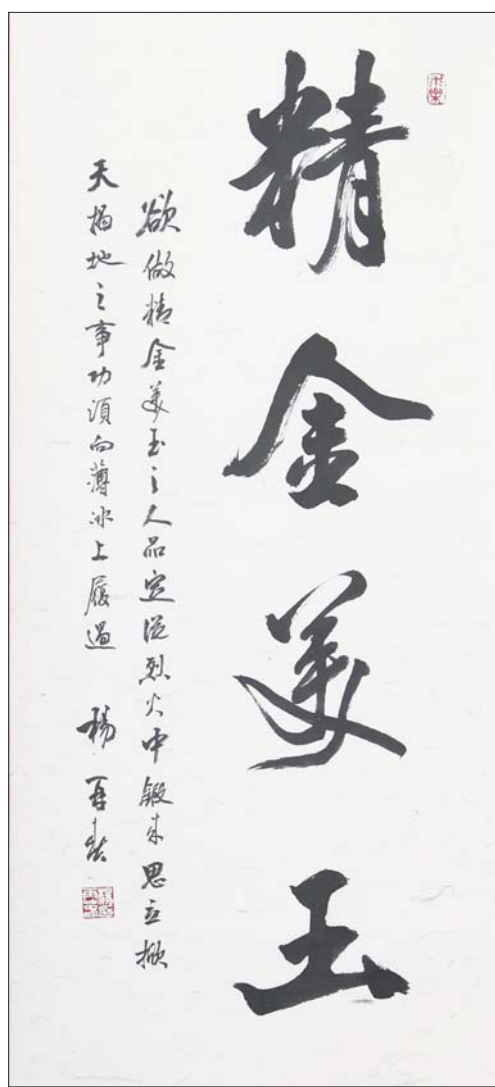 精金美玉
欲做精金美玉之人品定從烈火中鍛來思立掀
天揭地之事功須向薄冰上履過 楊再春